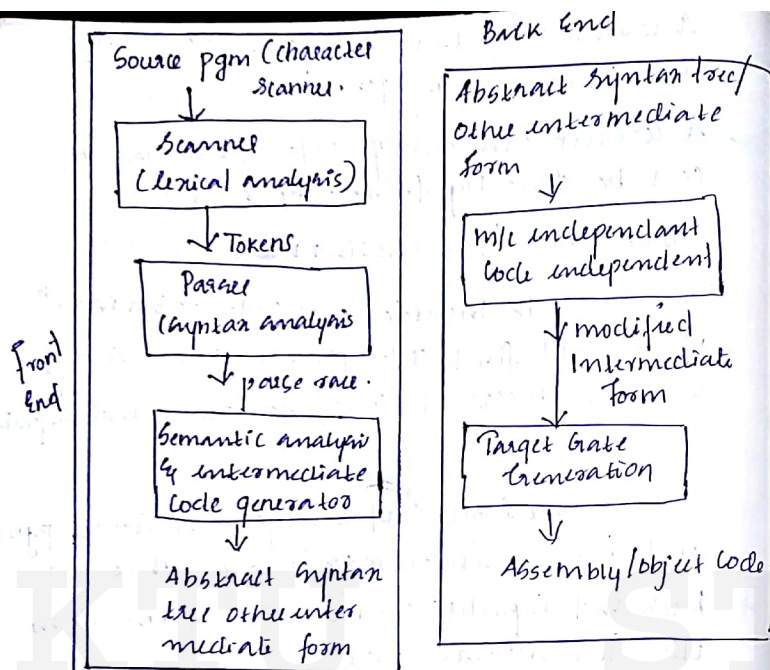 Source pgm (character
scanner.
Scanner
(lexical analysis)
Tokens
Parser
(syntax analysis
parse race.
Semantic analysis
& intermediate
code generator
Abstract Syntax
tree other inter
mediate form
Front
End
Back End
Abstract syntax tree/
other intermediate
form
m/c independant
Code independent
modified
Intermediate
form
Target Gate
Generation
Assembly/object Code
KTU ST